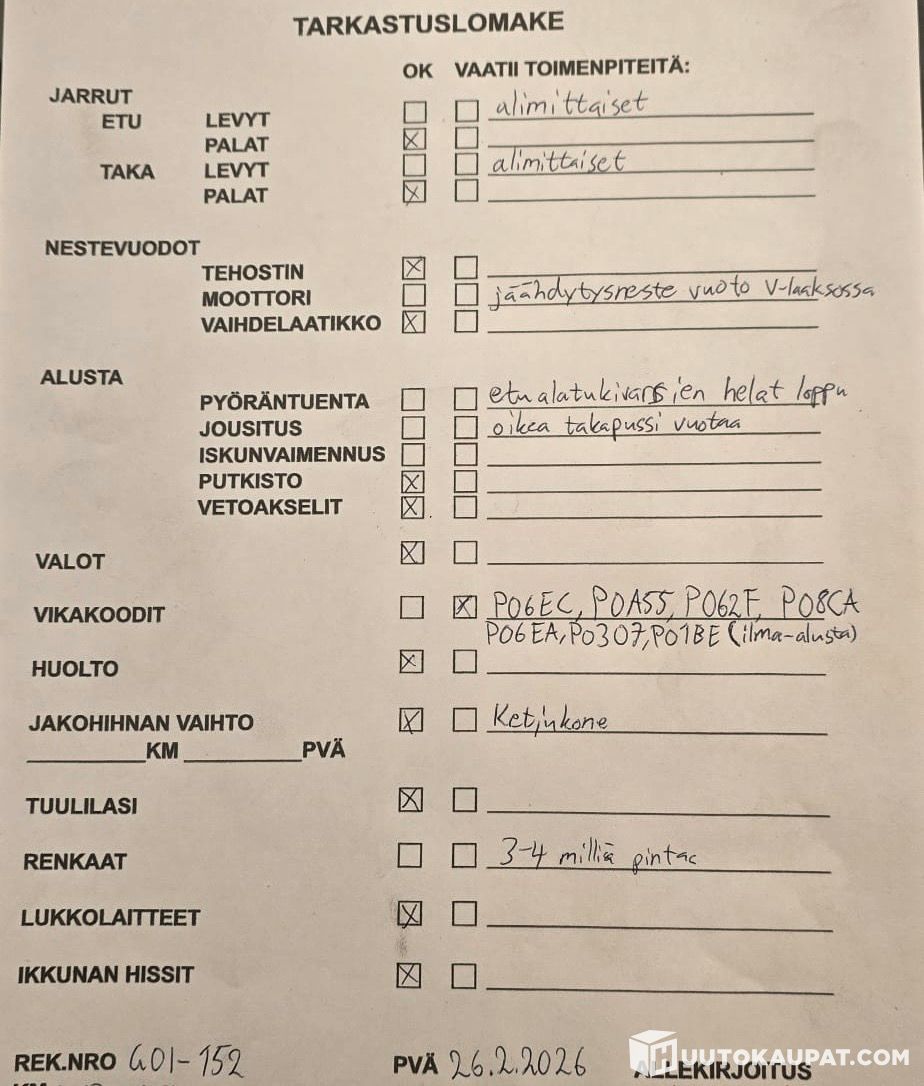 TARKASTUSLOMAKE
OK VAATII TOIMENPITEITÄ:
JARRUT
ETU LEVYT alimittaiset
PALAT
TAKA LEVYT alimittaiset
PALAT
NESTEVUODOT
TEHOSTIN
MOOTTORI jäähdytysneste vuoto V-laaksossa
VAIHDELAATIKKO
ALUSTA
PYÖRÄNTUENTA etualatukivarsien helat loppu
JOUSITUS oikea takapussi vuotaa
ISKUNVAIMENNUS
PUTKISTO
VETOAKSELIT
VALOT
VIKAKOODIT P06EC, P0A55, P062F, P08CA
P06EA, P0307, P01BE (ilma-alusta)
HUOLTO
JAKOHIHNAN VAIHTO Ketjukone
KM PVÄ
TUULILASI
RENKAAT 3-4 milliä pintaa
LUKKOLAITTEET
IKKUNAN HISSIT
REK.NRO GOI-152 PVÄ 26.2.2026 ALLEKIRJOITUS
HUUTOKAUPAT.COM